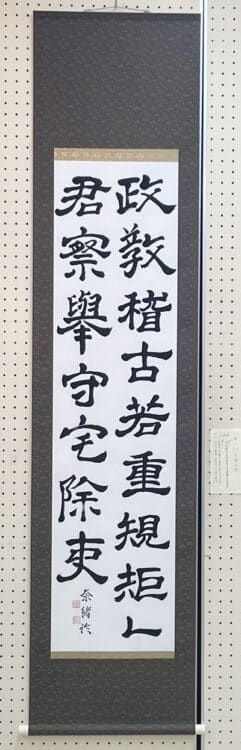 政教稽古若重規矩乙
君察舉守宅除吏
奈緒